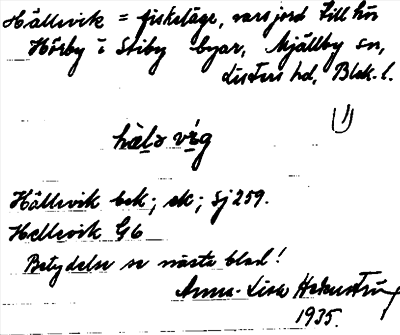 Hällevik = fiskeläge, vars jord till hör
Hörby i Stiby byar, Mjällby sn,
Listers hd, Blek. l.
hælə vig
Hällevik bek; ek; sj 259.
Hellevik G6
Betydelse se nästa blad!
Anna-Lisa
1935.